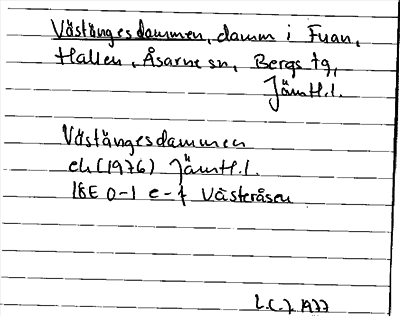 Västängesdammen, damm i Fuan,
Hallen, Åsarne sn, Bergs tg,
Jämtl.l.
Västängesdammen
ek (1976) Jämtl.l.
18E 0-1 e-f Västeråsen
L.C.J. 1977